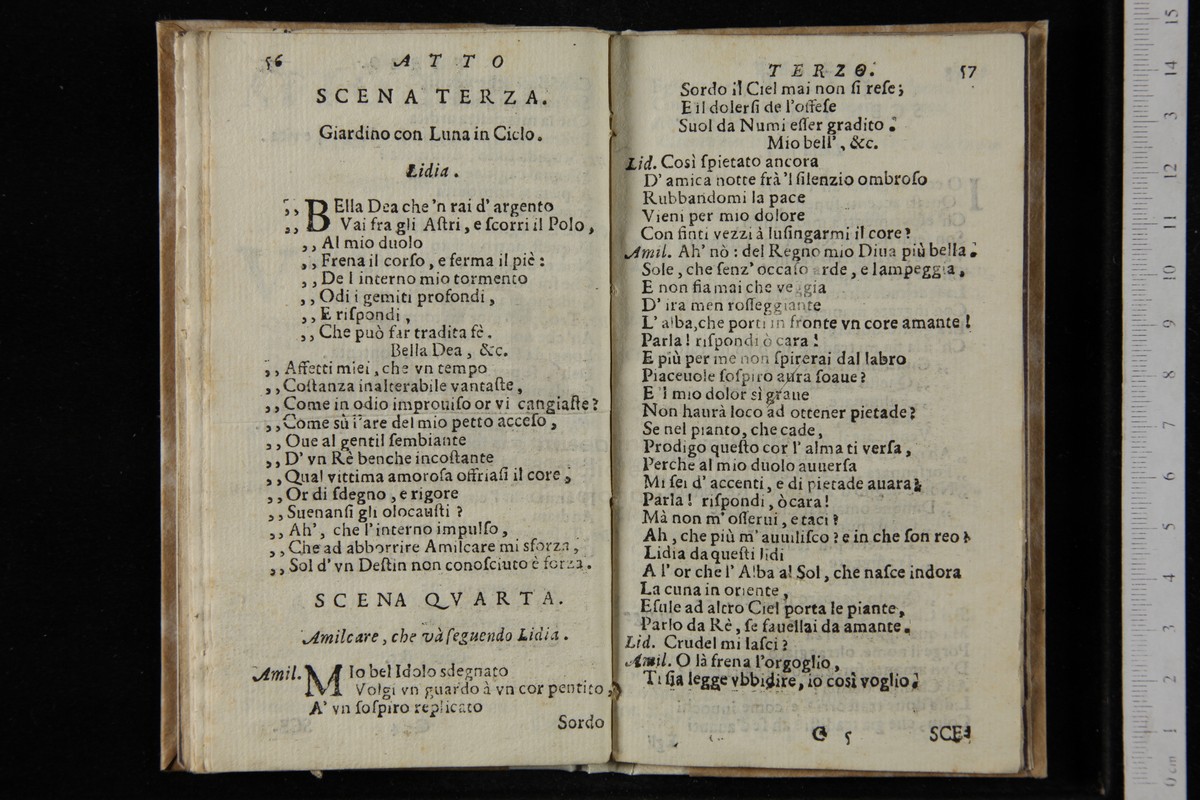 56 ATTO
SCENA TERZA.
Giardino con Luna in Cielo.
Lidia.
,, BElla Dea che 'n rai d' argento
,, Vai fra gli Aſtri, e ſcorri il Polo,
,, Al mio duolo
,, Frena il corſo, e ferma il piè:
,, De l interno mio tormento
,, Odi i gemiti profondi,
,, E riſpondi,
,, Che può far tradita fè.
Bella Dea, &c.
,, Affetti miei, che vn tempo
,, Coſtanza inalterabile vantaſte,
,, Come in odio improuiſo or vi cangiaſte?
,, Come sù l'are del mio petto acceſo,
,, Oue al gentil ſembiante
,, D' vn Rè benche incoſtante
,, Qual vittima amoroſa offriaſi il core,
,, Or di ſdegno, e rigore
,, Suenanſi gli olocauſti?
,, Ah', che l'interno impulſo,
,, Che ad abborrire Amilcare mi sforza,
,, Sol d' vn Deſtin non conoſciuto è forza.
SCENA QVARTA.
Amilcare, che và ſeguendo Lidia.
Amil. MIo bel Idolo sdegnato
Volgi vn guardo à vn cor pentito,
A' vn ſoſpiro replicato
Sordo
TERZO. 57
Sordo il Ciel mai non ſi reſe;
E il dolerſi de l'offeſe
Suol da Numi eſſer gradito.
Mio bell', &c.
Lid. Così ſpietato ancora
D' amica notte frà 'l ſilenzio ombroſo
Rubbandomi la pace
Vieni per mio dolore
Con finti vezzi à luſingarmi il core?
Amil. Ah' nò: del Regno mio Diua più bella.
Sole, che ſenz' occaſo arde, e lampeggia,
E non fia mai che veggia
D' ira men roſſeggiante
L' alba, che porti in fronte vn core amante!
Parla! riſpondi ò cara!
E più per me non ſpirerai dal labro
Piaceuole ſoſpiro aura ſoaue?
E 'l mio dolor sì graue
Non haurà loco ad ottener pietade?
Se nel pianto, che cade,
Prodigo queſto cor l' alma ti verſa,
Perche al mio duolo auuerſa
Mi ſei d' accenti, e di pietade auara?
Parla! riſpondi, ò cara!
Mà non m' oſſerui, e taci?
Ah, che più m' auuiliſco? e in che ſon reo?
Lidia da queſti lidi
A l' or che l' Alba al Sol, che naſce indora
La cuna in oriente,
Eſule ad altro Ciel porta le piante,
Parlo da Rè, ſe fauellai da amante.
Lid. Crudel mi laſci?
Amil. O là frena l'orgoglio,
Ti ſia legge vbbidire, io così voglio.
G 5 SCE-